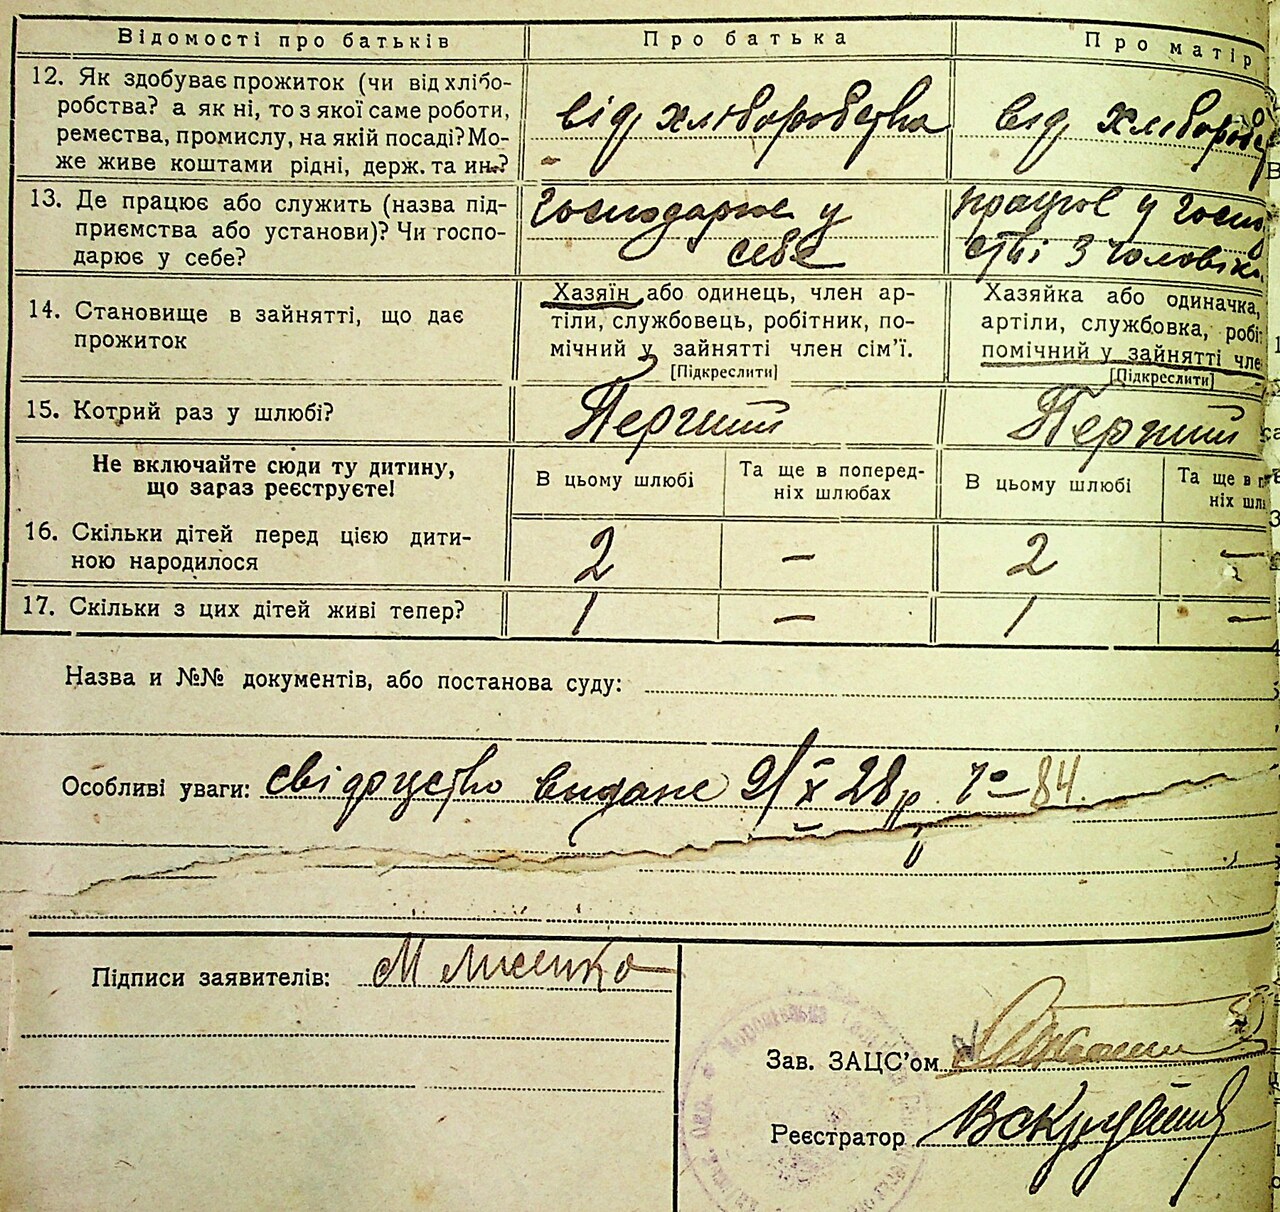 Відомості про батьків
Про батька
Про матір
12. Як здобуває прожиток (чи від хлібо-
робства? а як ні, то з якої саме роботи,
ремества, промислу, на якій посаді? Мо-
же живе коштами рідні, держ. та ин.?
від хліборобства
від хліборобс
13. Де працює або служить (назва під-
приємства або установи)? Чи госпо-
дарює у себе?
Господарює у
себе
працює у госпо
стві з чоловіко
14. Становище в зайнятті, що дає
прожиток
Хазяїн або одинець, член ар-
тіли, службовець, робітник, по-
мічний у зайнятті член сім’ї.
[Підкреслити]
Хазяйка або одиначка,
артіли, службовка, робі
помічний у зайнятті чле
[Підкреслити]
15. Котрий раз у шлюбі?
Перший
Перший
Не включайте сюди ту дитину,
що зараз реєструєте!
В цьому шлюбі
Та ще в поперед-
ніх шлюбах
В цьому шлюбі
Та ще в п
ніх шлю
16. Скільки дітей перед цією дити-
ною народилося
2
—
2
—
17. Скільки з цих дітей живі тепер?
1
—
1
—
Назва и №№ документів, або постанова суду:
Особливі уваги: свідоцство видане 9/X 28 р. 84
Підписи заявителів: М Лисенко
Зав. ЗАЦС’ом
Реєстратор